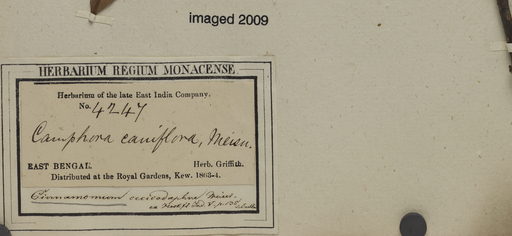 imaged 2009
HERBARIUM REGIUM MONACENSE
Herbarium of the late East India Company.
No. 4247
Camphora caniflora, Meisn.
EAST BENGAL. Herb. Griffith.
Distributed at the Royal Gardens, Kew. 1863-4.
Cinnamomum cecicodaphne Meisn.
ex Hook f. Ind. V. p. 135